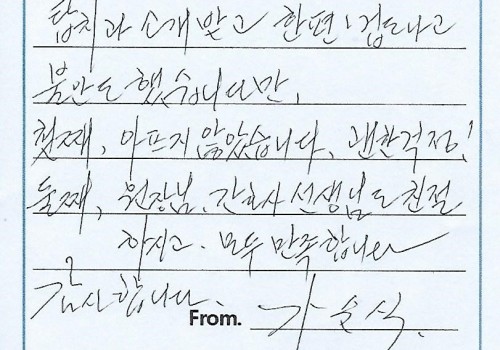 합치과 소개 받고 한편 겁도나고
불안도 했습니다만,
첫째, 아프지 않았습니다, 괜한걱정!
둘째, 원장님, 간호사 선생님도 친절
하시고. 모두 만족합니다
감사합니다.
From. 가순식.